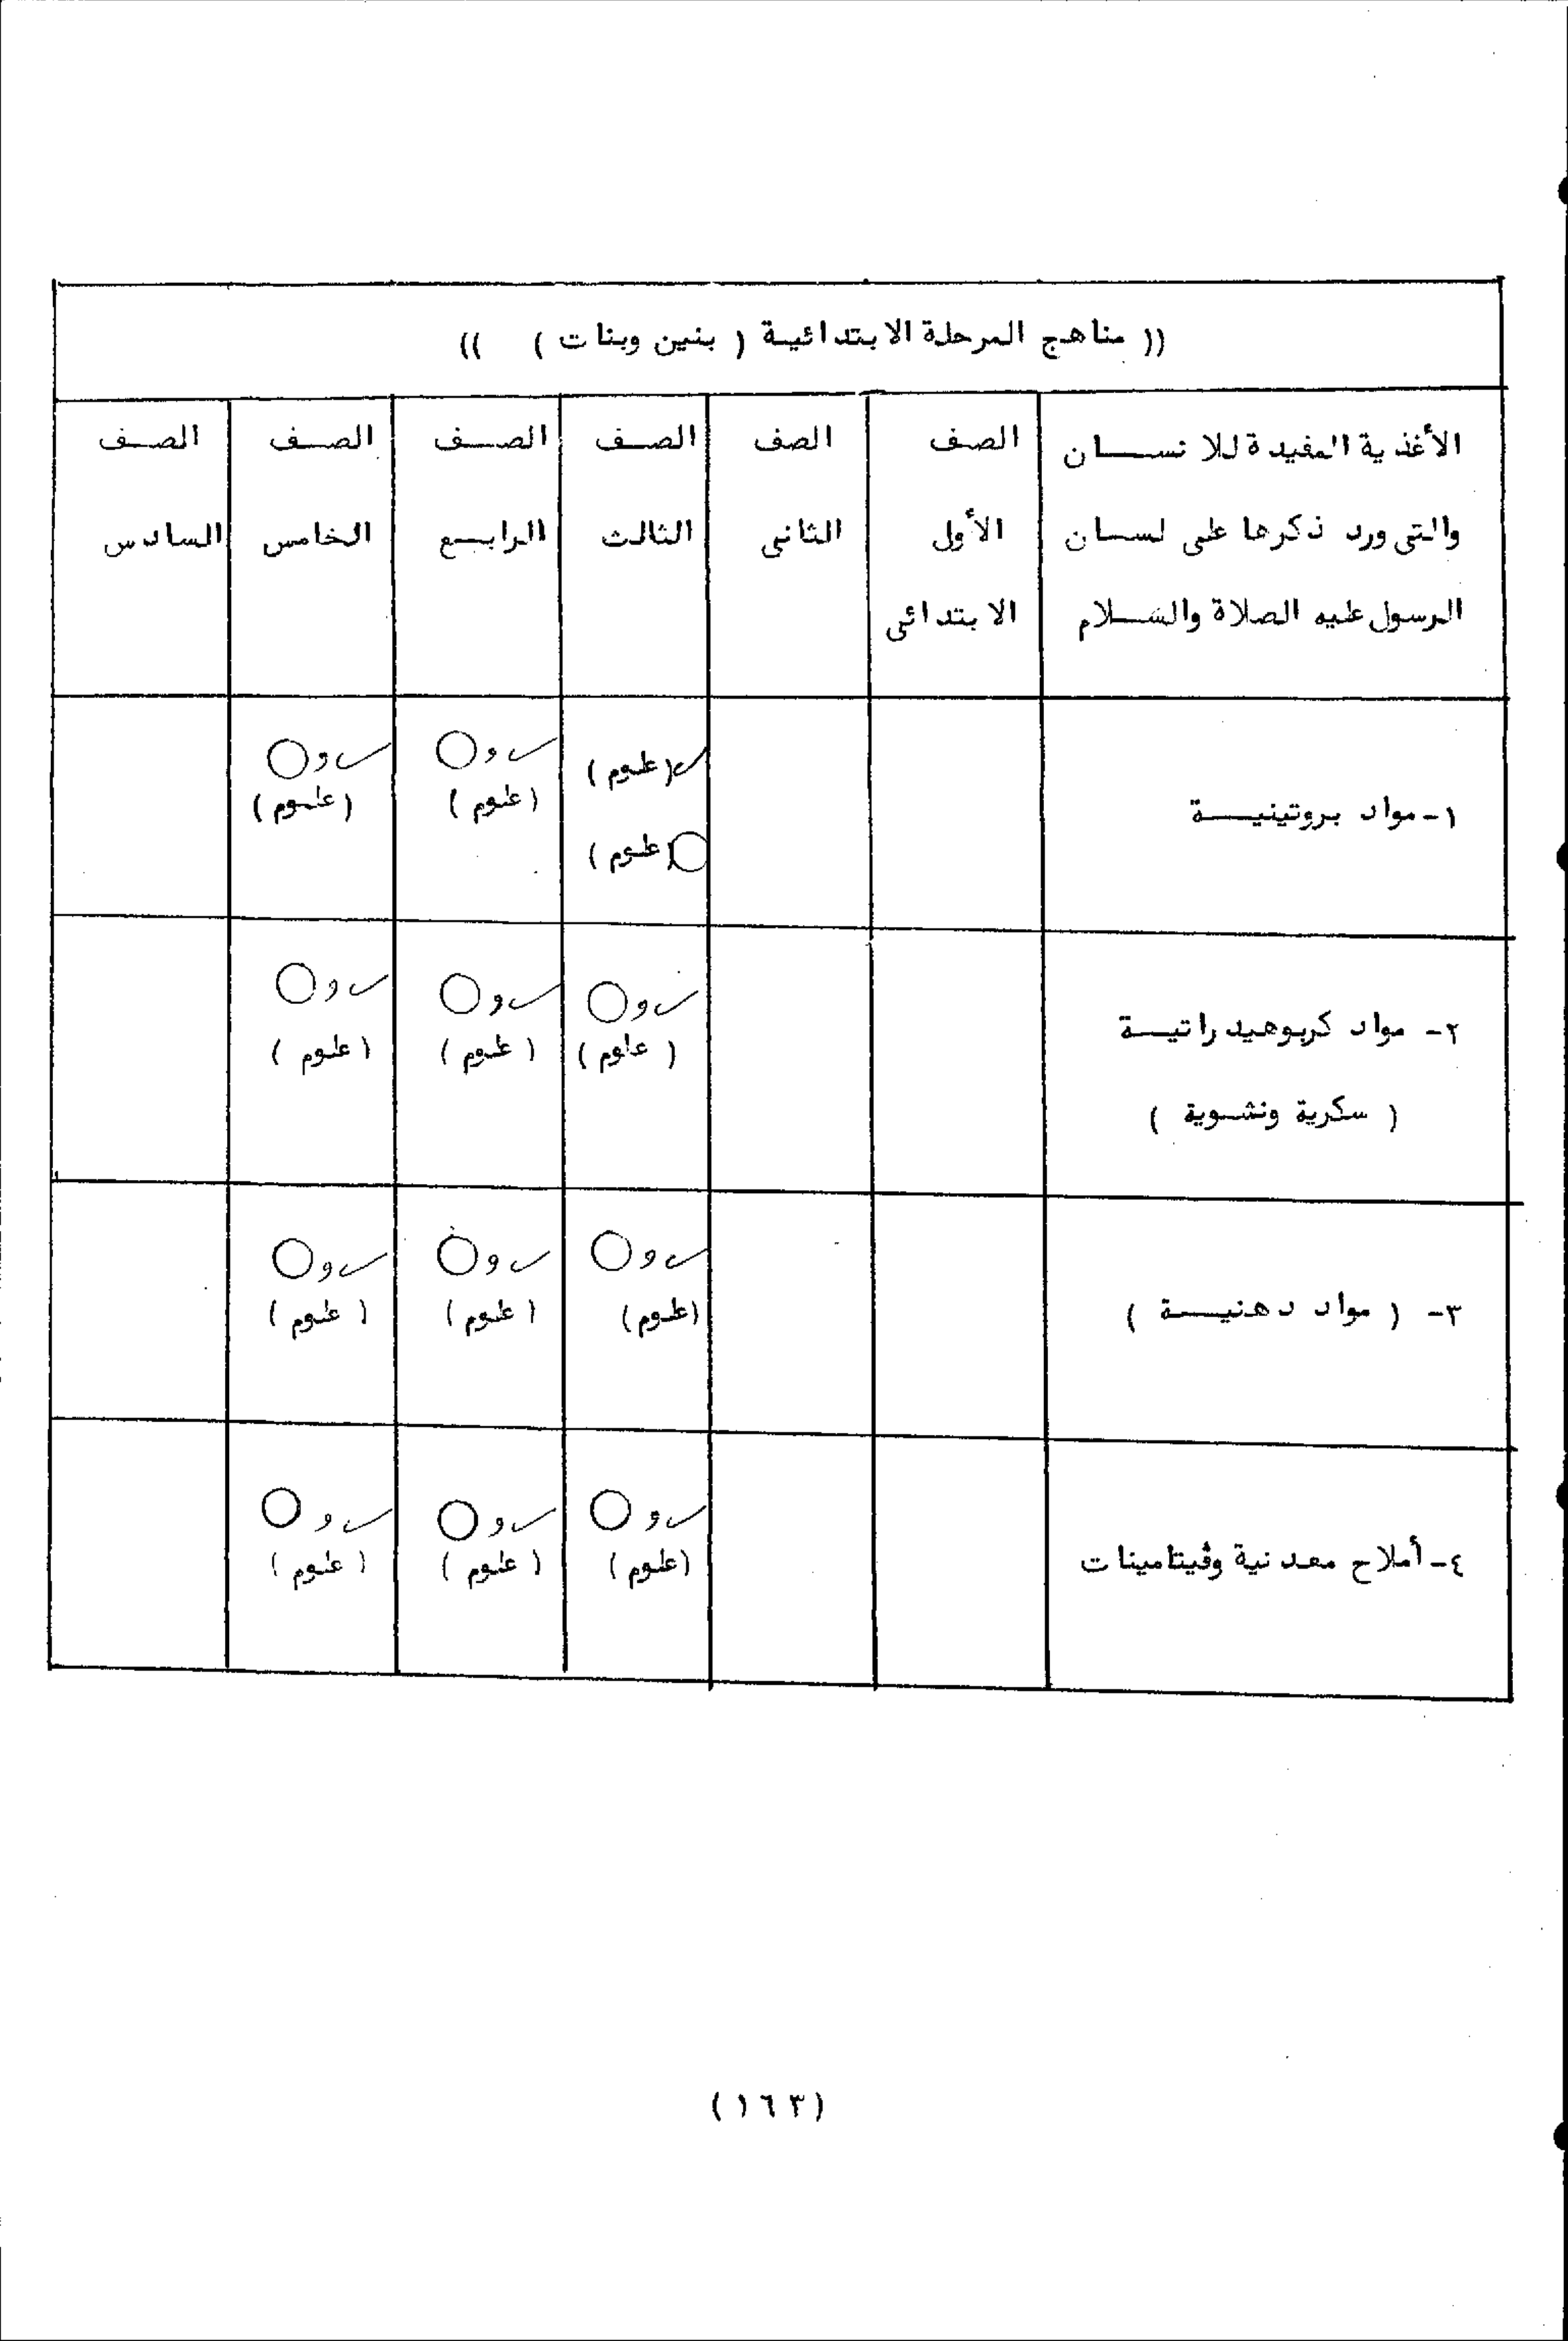 (( مناهج المرحلة الابتدائية ( بنين وبنات ) ))
الأغذية المفيدة للانسان
والتى ورد ذكرها على لسان
الرسول عليه الصلاة والسلام
الصف
الأول
الابتدائى
الصف
الثانى
الصف
الثالث
الصف
الرابع
الصف
الخامس
الصف
السادس
١- مواد بروتينية
✓ (علوم)
○ (علوم)
✓ و ○
(علوم)
✓ و ○
(علوم)
٢- مواد كربوهيدراتية
( سكرية ونشوية )
✓ و ○
(علوم)
✓ و ○
(علوم)
✓ و ○
(علوم)
٣- ( مواد دهنية )
✓ و ○
(علوم)
✓ و ○
(علوم)
✓ و ○
(علوم)
٤- أملاح معدنية وفيتامينات
✓ و ○
(علوم)
✓ و ○
(علوم)
✓ و ○
(علوم)
(١٦٣)